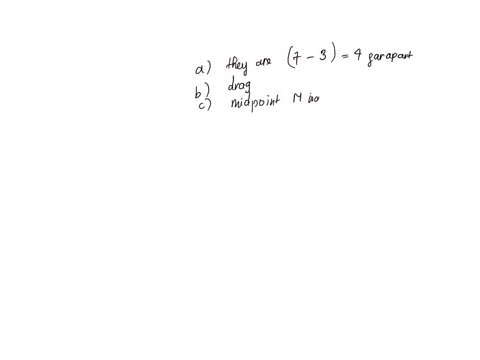 a) they are (7 - 3) = 4 far apart
b) drag
c) midpoint M is